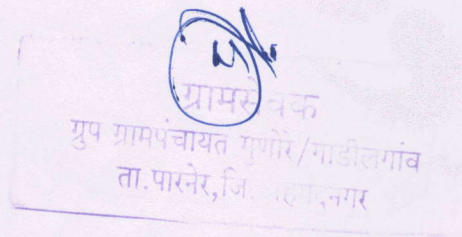 ग्रामसेवक
ग्रुप ग्रामपंचायत गुणोरे/गाडीलगांव
ता.पारनेर,जि. अहमदनगर